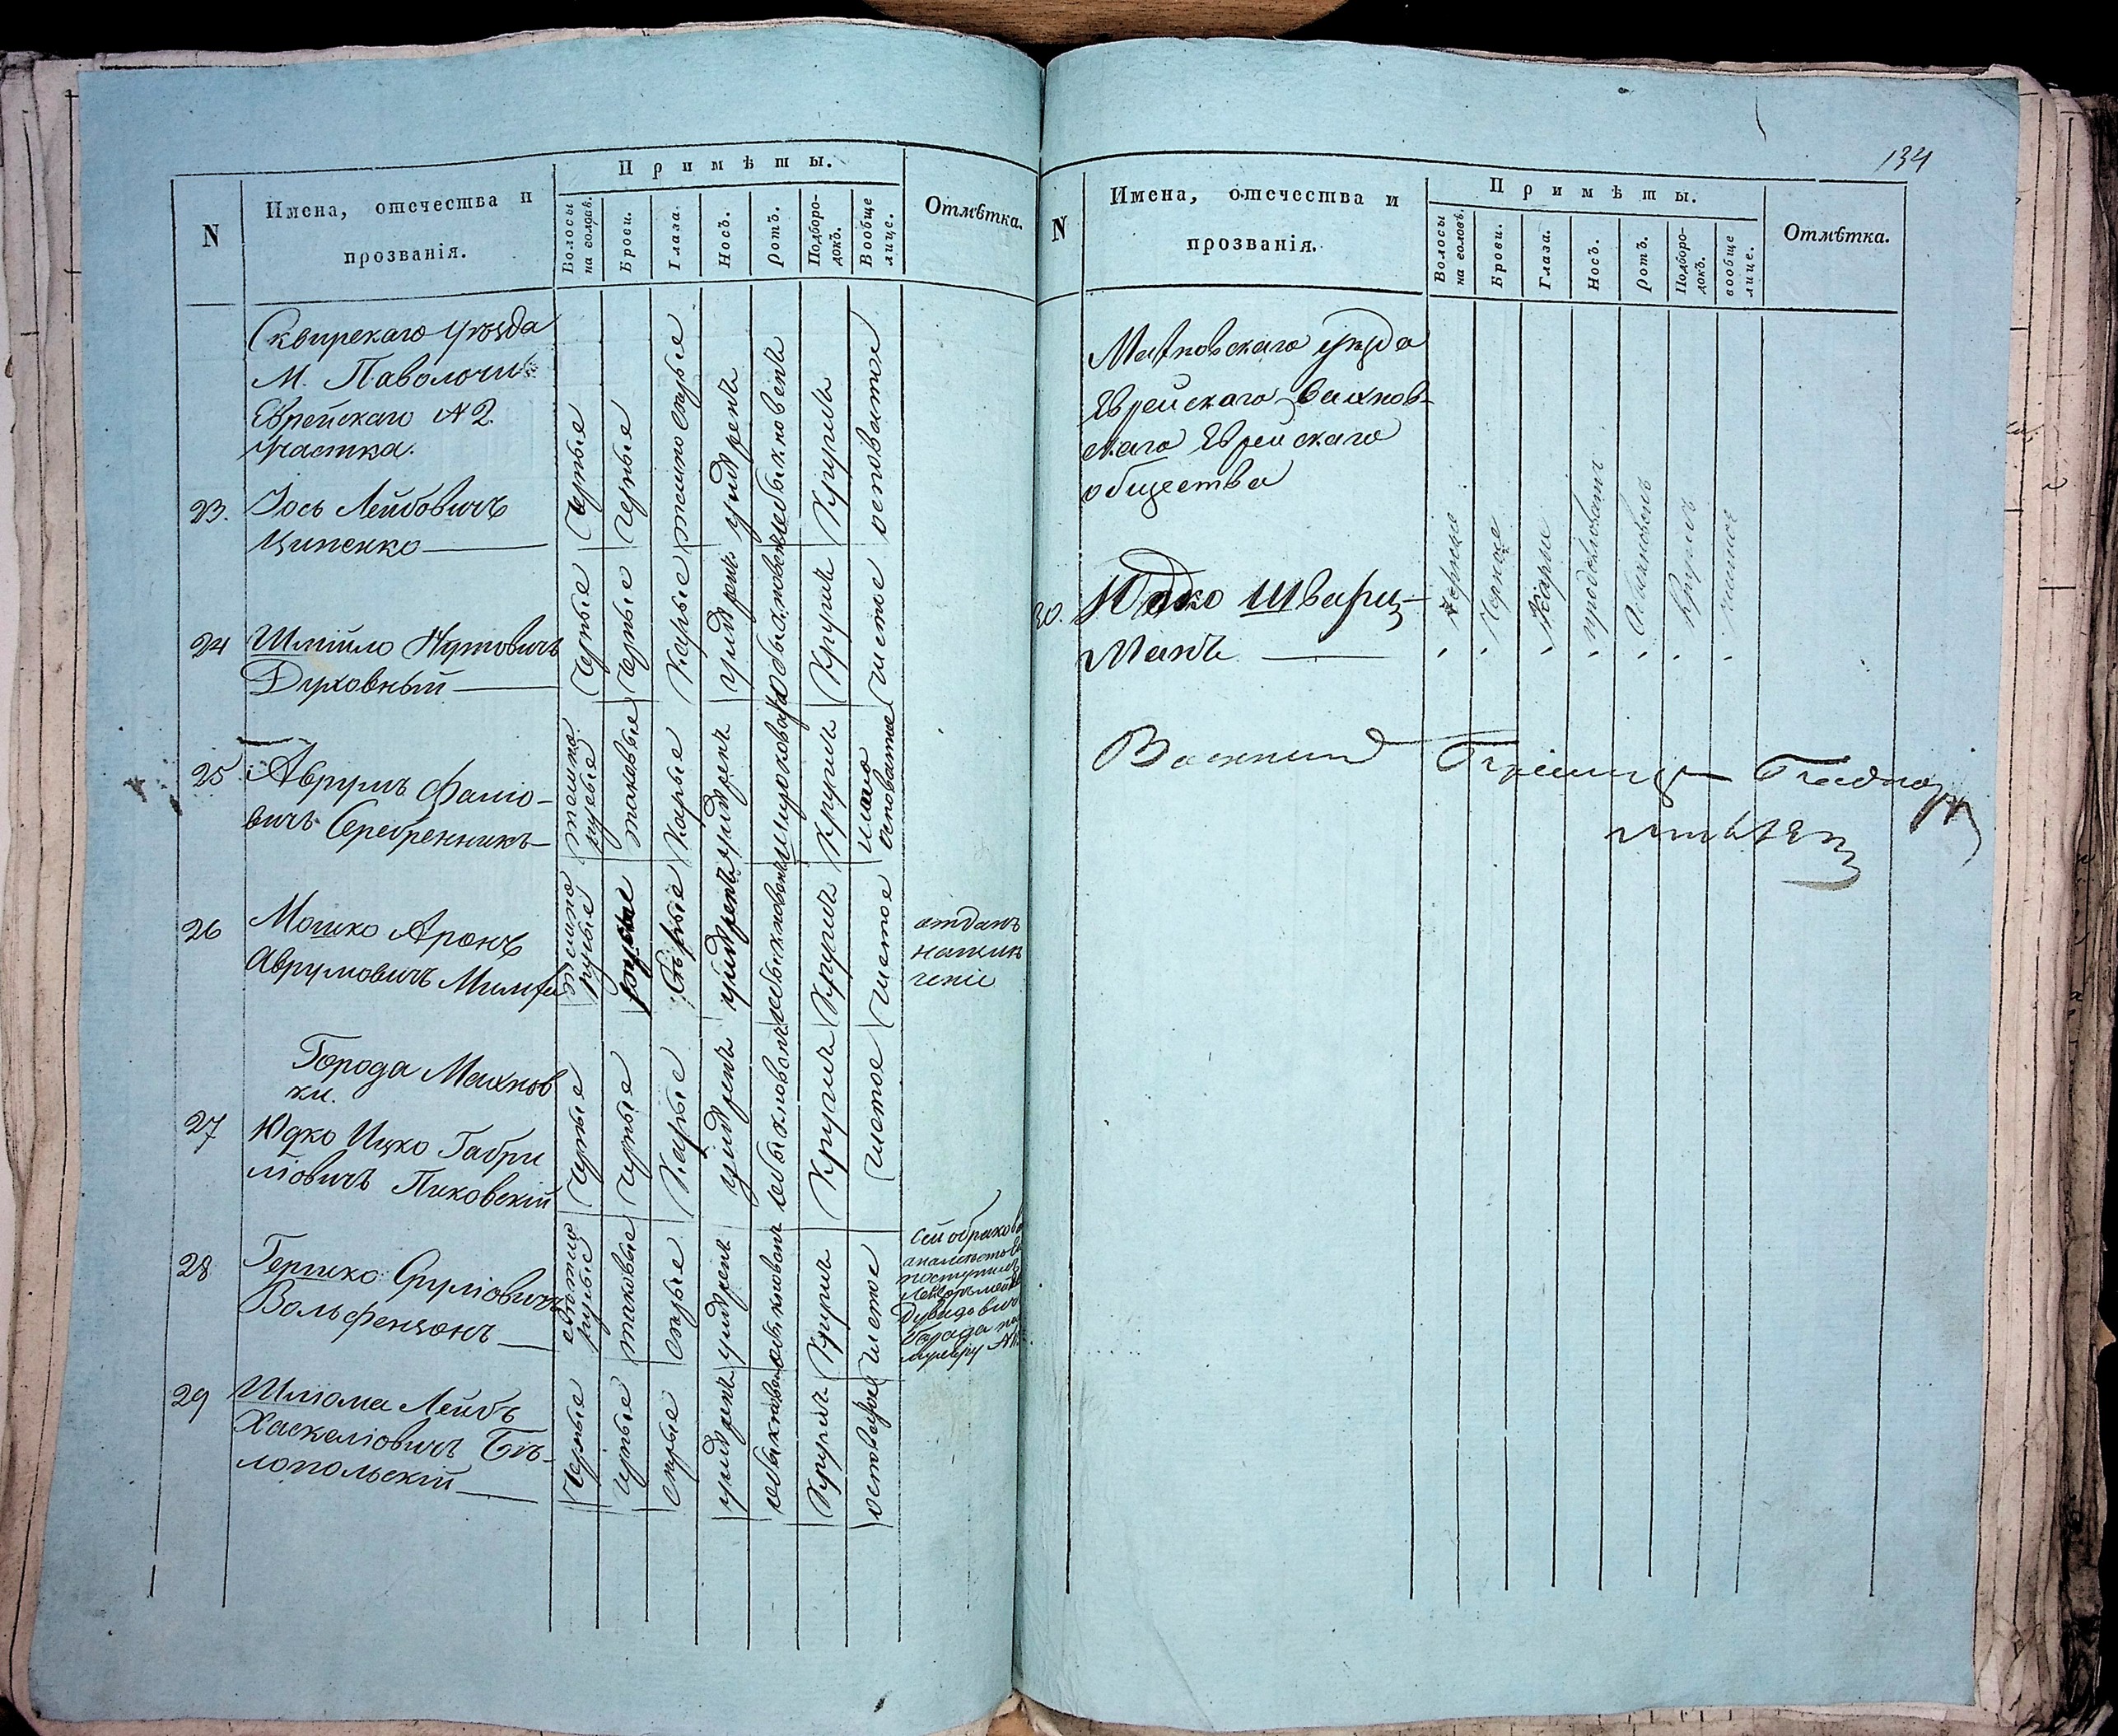 N
Имена, отечества и
прозванія.
Примѣты.
Волосы
на головѣ.
Брови.
Глаза.
Носъ.
Ротъ.
Подборо-
докъ.
Вообще
лице.
Отмѣтка.
Сквирскаго уѣзда
М. Паволочи
Еврейскаго № 2.
участка.
23. Іось Лейбовичъ
Ципенко
Черные
черные
темносѣрые
умѣренъ
обыкновенъ
Круглъ
осповатое
24 Шмійло Нутовичъ
Духовный
Черные
Черные
Карые
умѣренъ
обыкновенъ
Круглъ
чистое
25 Аврумъ
вичъ Серебренникъ
темно
русые
таковые
Карые
умѣренъ
широковатъ
Круглъ
мало
осповатое
26 Мошко Аронъ
Аврумовичъ
темно
русые
русые
Сѣрые
умѣренъ
обыкновенъ
Круглъ
чистое
отданъ
Города Махнов
ки.
27 Юдко Ицко Габри
ліовичъ Пиковскій
Черные
черные
Карые
умѣренъ
обыкновенъ
Круглъ
чистое
28 Гершко Сруліовичъ
Вольфензонъ
свѣтло
русые
таковые
сѣрые
умѣренъ
обыкновенъ
Круглъ
чистое
поступилъ
Города
29 Шліома Лейбъ
Хаскеліовичъ Бѣ-
лопольскій
Черные
черные
сѣрые
умѣренъ
обыкновенъ
Круглъ
134
N
Имена, отечества и
прозванія.
Примѣты.
Волосы
на головѣ.
Брови.
Глаза.
Носъ.
Ротъ.
Подборо-
докъ.
вообще
лице.
Отмѣтка.
Махновскаго уѣзда
Еврейскаго Вахнов-
скаго Еврейскаго
общества
30. Юдко Шварц-
Манъ
Черные
Черные
Карые
продолговатъ
Обыкновенъ
Круглъ
чистое